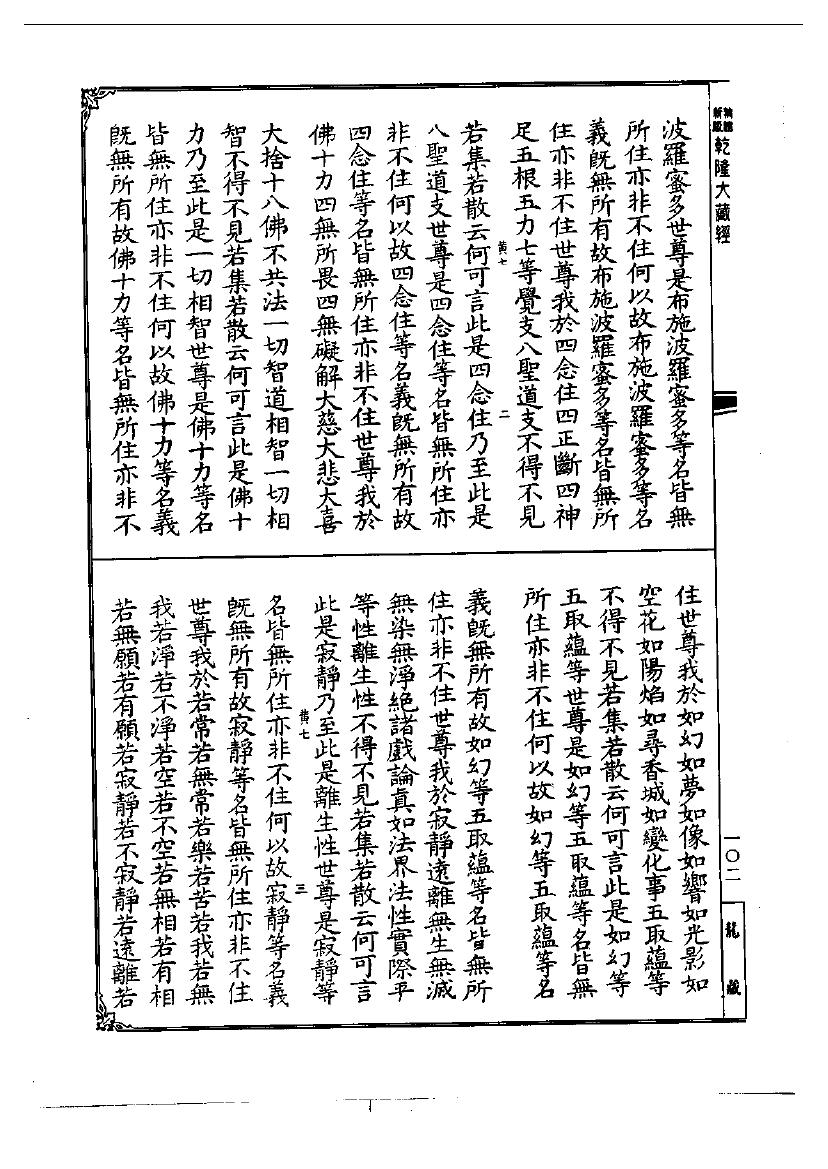 新編縮版乾隆大藏經
波羅蜜多世尊是布施波羅蜜多等名皆無
所住亦非不住何以故布施波羅蜜多等名
義旣無所有故布施波羅蜜多等名皆無所
住亦非不住世尊我於四念住四正斷四神
足五根五力七等覺支八聖道支不得不見
黃七 二
若集若散云何可言此是四念住乃至此是
八聖道支世尊是四念住等名皆無所住亦
非不住何以故四念住等名義旣無所有故
四念住等名皆無所住亦非不住世尊我於
佛十力四無所畏四無礙解大慈大悲大喜
大捨十八佛不共法一切智道相智一切相
智不得不見若集若散云何可言此是佛十
力乃至此是一切相智世尊是佛十力等名
皆無所住亦非不住何以故佛十力等名義
旣無所有故佛十力等名皆無所住亦非不
住世尊我於如幻如夢如像如響如光影如
空花如陽焰如尋香城如變化事五取蘊等
不得不見若集若散云何可言此是如幻等
五取蘊等世尊是如幻等五取蘊等名皆無
所住亦非不住何以故如幻等五取蘊等名
義旣無所有故如幻等五取蘊等名皆無所
住亦非不住世尊我於寂靜遠離無生無滅
無染無淨絕諸戲論眞如法界法性實際平
等性離生性不得不見若集若散云何可言
此是寂靜乃至此是離生性世尊是寂靜等
黃七 三
名皆無所住亦非不住何以故寂靜等名義
旣無所有故寂靜等名皆無所住亦非不住
世尊我於若常若無常若樂若苦若我若無
我若淨若不淨若空若不空若無相若有相
若無願若有願若寂靜若不寂靜若遠離若
一〇二
龍藏